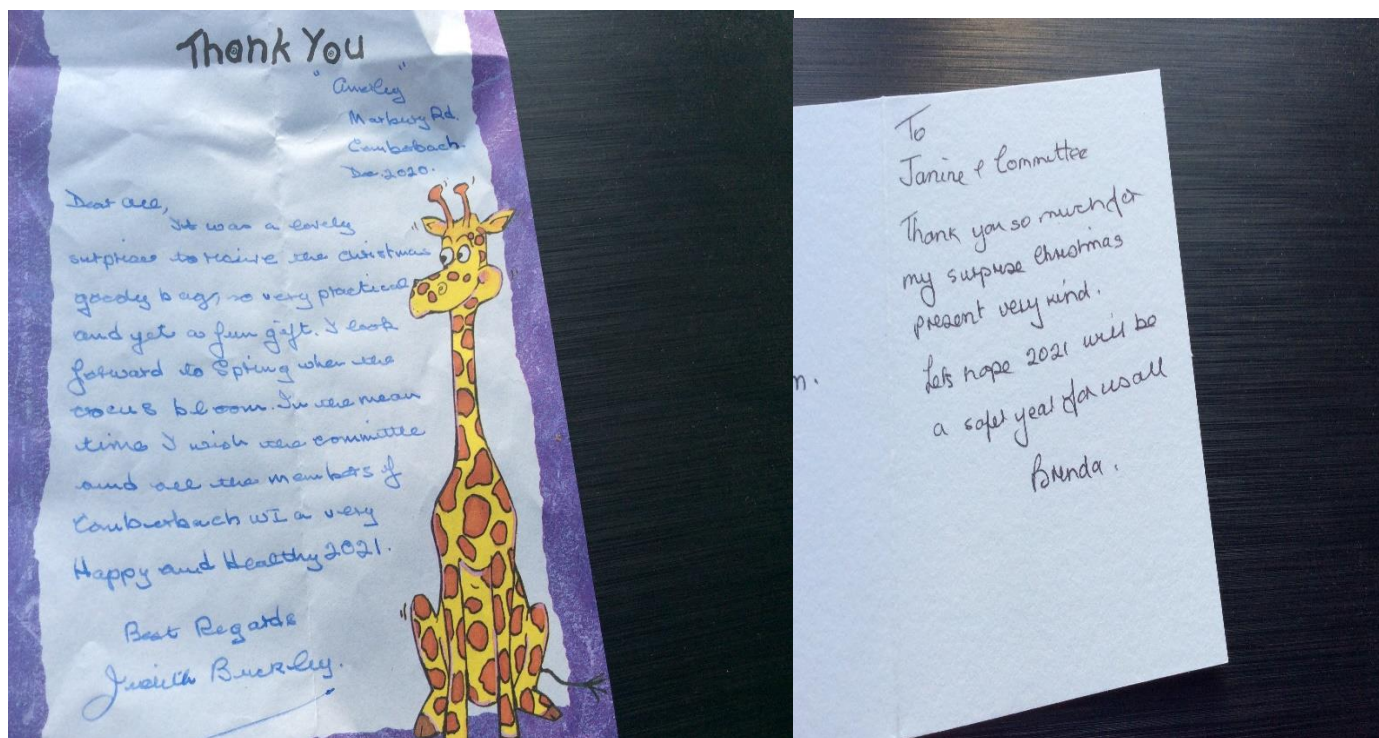 Thank You
"Amerley"
Marbury Rd.
Comberbach.
Dec 2020.
Dear All,
It was a lovely
surprise to recieve the christmas
goody bag, so very practical
and yet a fun gift. I look
forward to Spring when the
crocus bloom. In the mean
time I wish the committee
and all the members of
Comberbach WI a very
Happy and Healthy 2021.
Best Regards
Judith Buckley.
n.
To
Janine & Committee
Thank you so much for
my surprise Christmas
present very kind.
Lets hope 2021 will be
a safer year for us all
Brenda.